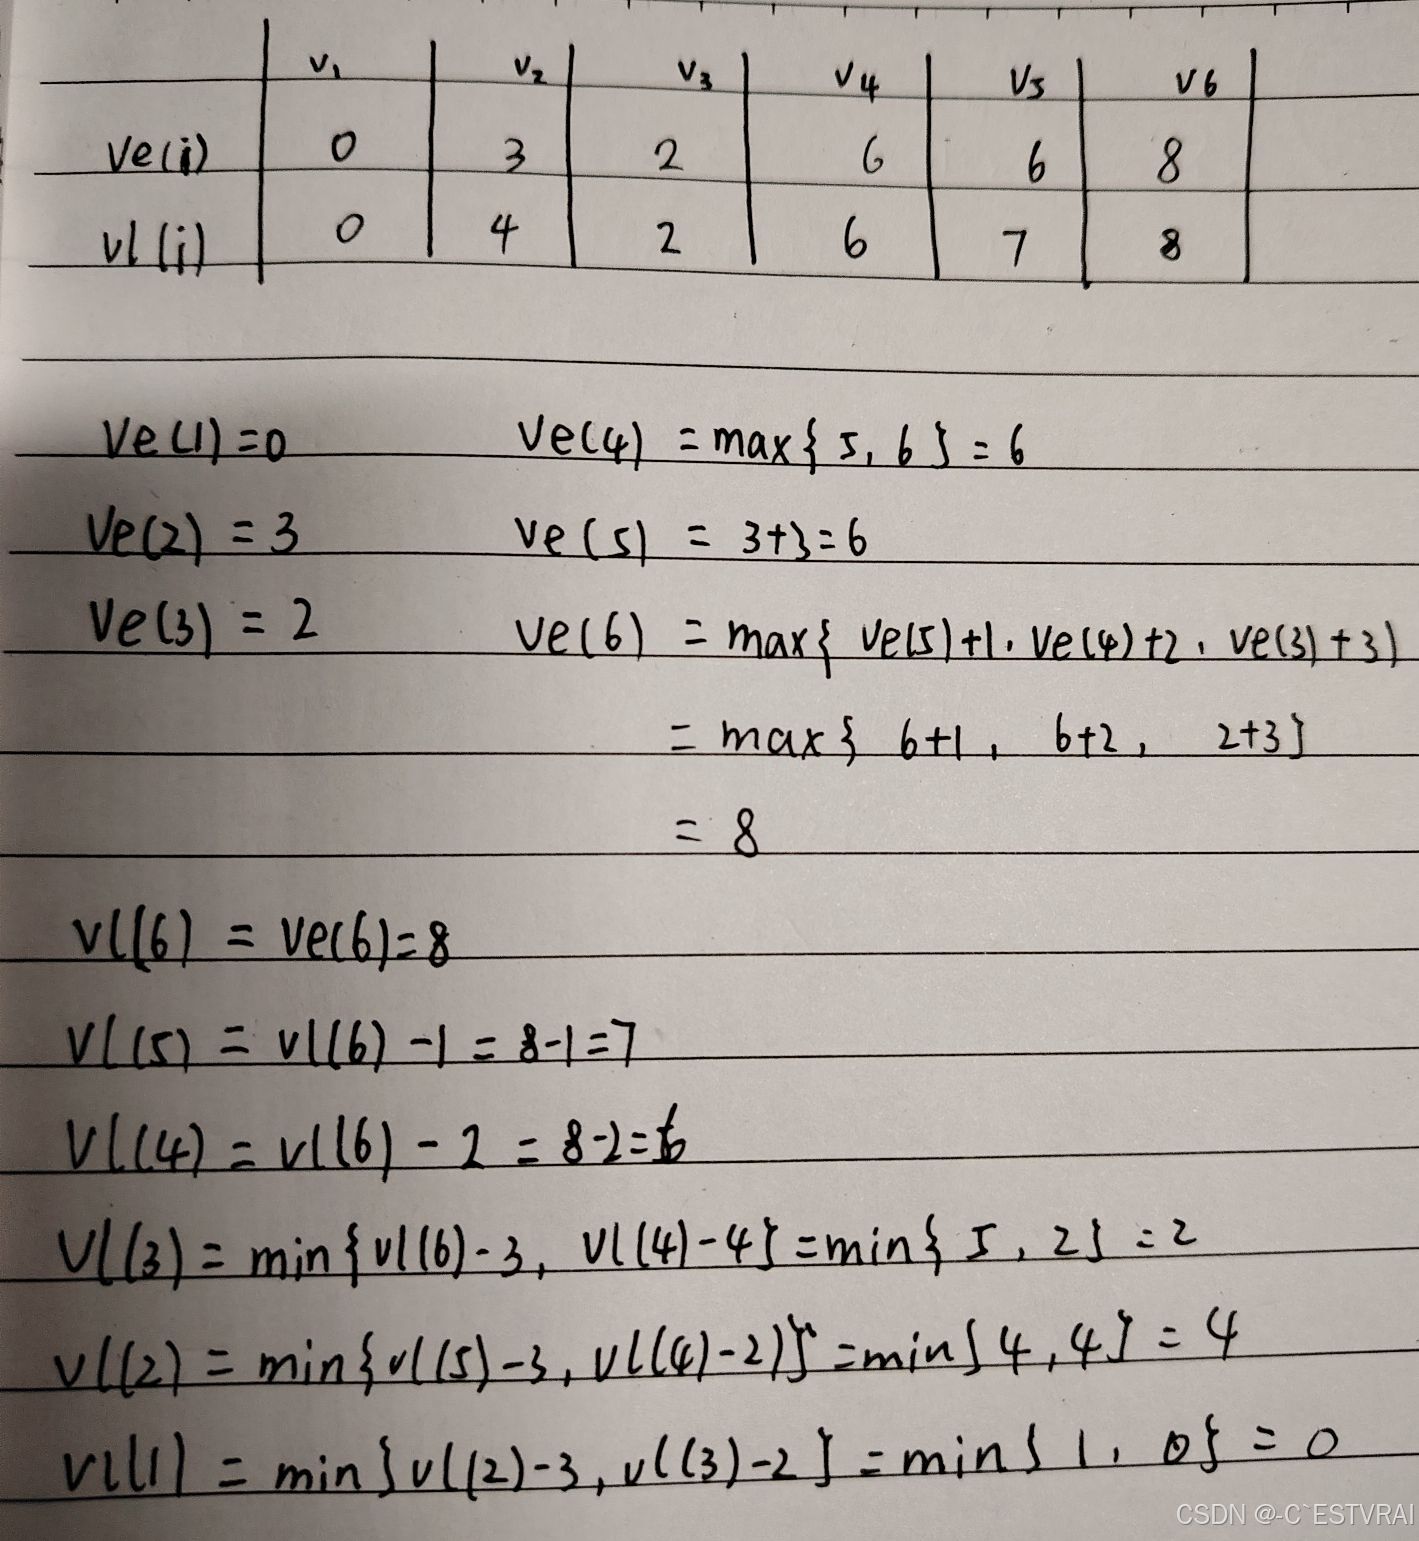 V1 V2 V3 V4 V5 V6
Ve(i) 0 3 2 6 6 8
Vl(i) 0 4 2 6 7 8
Ve(1)=0 Ve(4) = max{ 5, 6 } = 6
Ve(2) = 3 Ve(5) = 3+3=6
Ve(3) = 2 Ve(6) = max{ Ve(5)+1, Ve(4)+2, Ve(3)+3}
= max{ 6+1, 6+2, 2+3}
= 8
Vl(6) = Ve(6)=8
Vl(5) = Vl(6) -1 = 8-1=7
Vl(4) = Vl(6) - 2 = 8-2=6
Vl(3) = min{Vl(6)-3, Vl(4)-4} =min{ 5, 2} = 2
Vl(2) = min{Vl(5)-3, Vl(4)-2)} =min{ 4, 4} = 4
Vl(1) = min{Vl(2)-3, Vl(3)-2} = min{ 1, 0} = 0
CSDN @-C`ESTVRAI